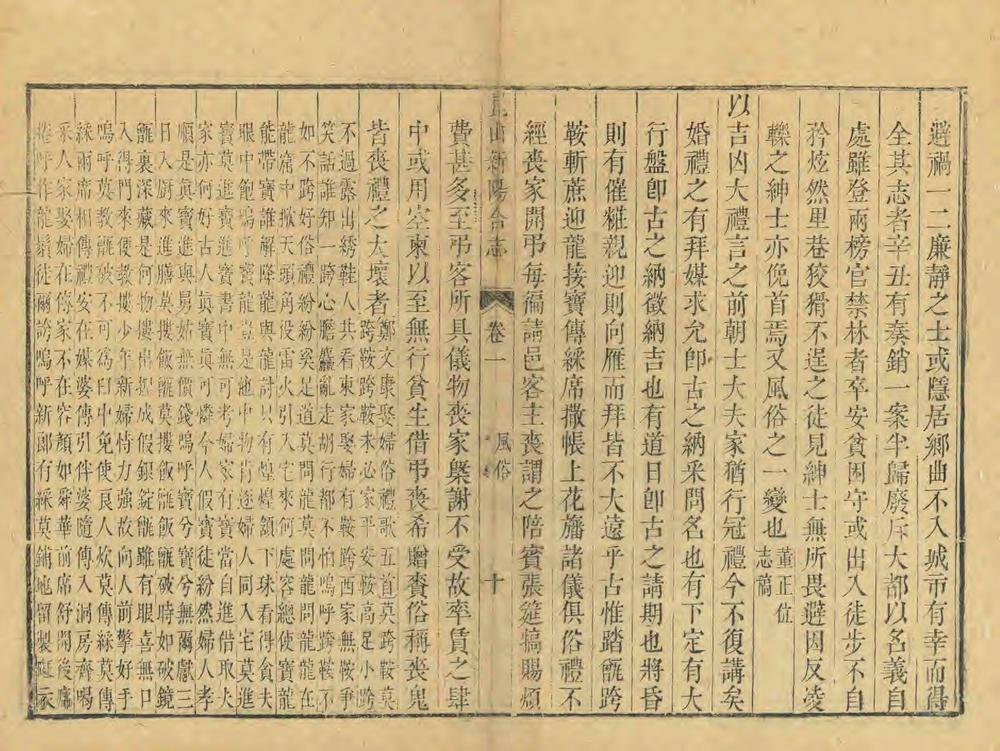 避禍一二廉靜之士或隱居鄉曲不入城市有幸而得
全其志者辛丑有奏銷一案半歸廢斥大都以名義自
處雖登兩榜官禁林者卒安貧困守或出入徒步不自
矜炫然里巷狡猾不逞之徒見紳士無所畏避因反凌
轢之紳士亦俛首焉又風俗之一變也董正位志稿
以吉凶大禮言之前朝士大夫家猶行冠禮今不復講矣
婚禮之有拜媒求允卽古之納采問名也有下定有大
行盤卽古之納徵納吉也有道日卽古之請期也將昏
則有催糚親迎則向雁而拜皆不大遠乎古惟踏甎跨
鞍斬蔗迎龍接寶傳綵席撒帳上花籓諸儀俱俗禮不
經喪家開弔每徧請邑客主喪謂之陪賓張筵犒賜煩
崑山新陽合志 卷一 風俗 十
費甚多至弔客所具儀物喪家槩謝不受故率賃之肆
中或用空柬以至無行貧生借弔喪希贈賚俗稱喪鬼
皆喪禮之大壞者鄭文康娶婦俗禮歌五首莫跨鞍莫
跨鞍跨鞍未必家平安鞍高足小跨
不過露出綉鞋人共看東家娶婦有鞍跨西家無鞍爭
笑話誰知一跨心膽麤亂走胡行都不怕嗚呼跨鞍不
如不跨好俗禮紛紛奚足道莫問龍莫問龍問龍龍在
龍窩中掀天頭角役雷火引入宅來何處容總使寶龍
能帶寶誰解降龍與龍討只有煌煌額下珠看得貪夫
眼中飽嗚呼寶龍豈是池中物肯逐婦人同入宅莫進
寶莫進寶進寶書中無可考婦家有寶當自進借取夫
家亦何好古人眞寶眞可憐今人假寶徒紛然婦人孝
順是眞寶進與舅姑無價錢嗚呼寶兮寶兮無爾獻三
日入廚來進膳莫摟飯甎莫摟飯甎飯甎破時如破鏡
甎裏深藏是何物摟出揑成假銀錠甎雖有眼喜無口
入得門來便教摟少年新婦恃力強故向人前擎好手
嗚呼莫教甎破不可為臼中免使良人炊莫傳綵莫傳
綵兩席相傳禮安在媒婆傳引伴婆隨傳入洞房齊喝
采人家娶婦在傳家不在容顏如舜華前席舒開後席
捲呼作龍鬚徒爾誇嗚呼新郎有綵莫鋪地留製斑衣